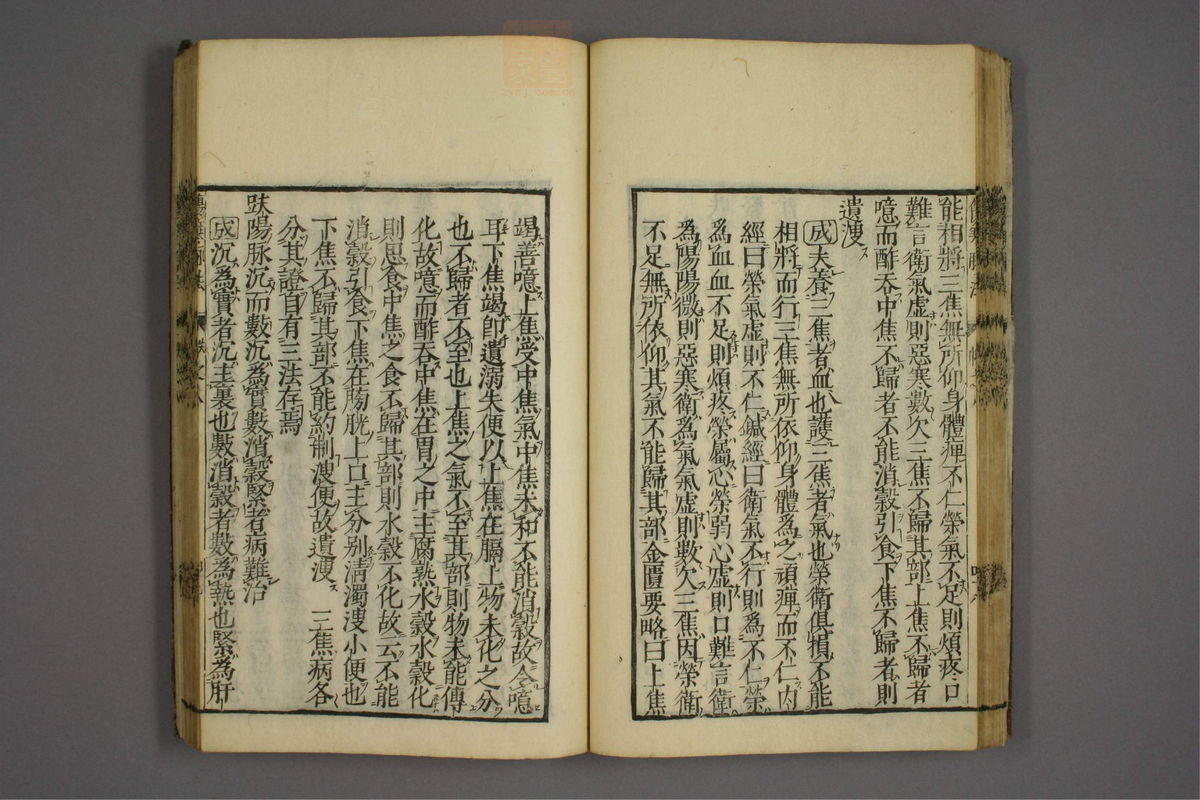 能相將三焦無所仰身體痺不仁榮氣不足則煩疼口
難言衛氣虛則惡寒數欠三焦不歸其部上焦不歸者
噫而酢吞中焦不歸者不能消穀引食下焦不歸者則
遺溲
成 夫養三焦者血也護三焦者氣也榮衛俱損不能
相將而行三焦無所依仰身體為之頑痺而不仁内
經曰榮氣虛則不仁鍼經曰衛氣不行則為不仁榮
為血血不足則煩疼榮屬心榮弱心虛則口難言衛
為陽陽微則惡寒衛為氣氣虛則數欠三焦因榮衛
不足無所依仰其氣不能歸其部金匱要略曰上焦
竭善噫上焦受中焦氣中焦未和不能消穀故令噫
耳下焦竭即遺溺失便以上焦在膈上物未化之分
也不歸者不至也上焦之氣不至其部則物未能傳
化故噫而酢吞中焦在胃之中主腐熟水穀水穀化
則思食中焦之食不歸其部則水穀不化故云不能
消穀引食下焦在膀胱上口主分別清濁溲小便也
下焦不歸其部不能約制溲便故遺溲 三焦病各
分其證自有三法存焉
趺陽脉沉而數沉為實數消穀緊者病難治
成 沉為實者沉主裏也數消穀者數為熱也緊為肝